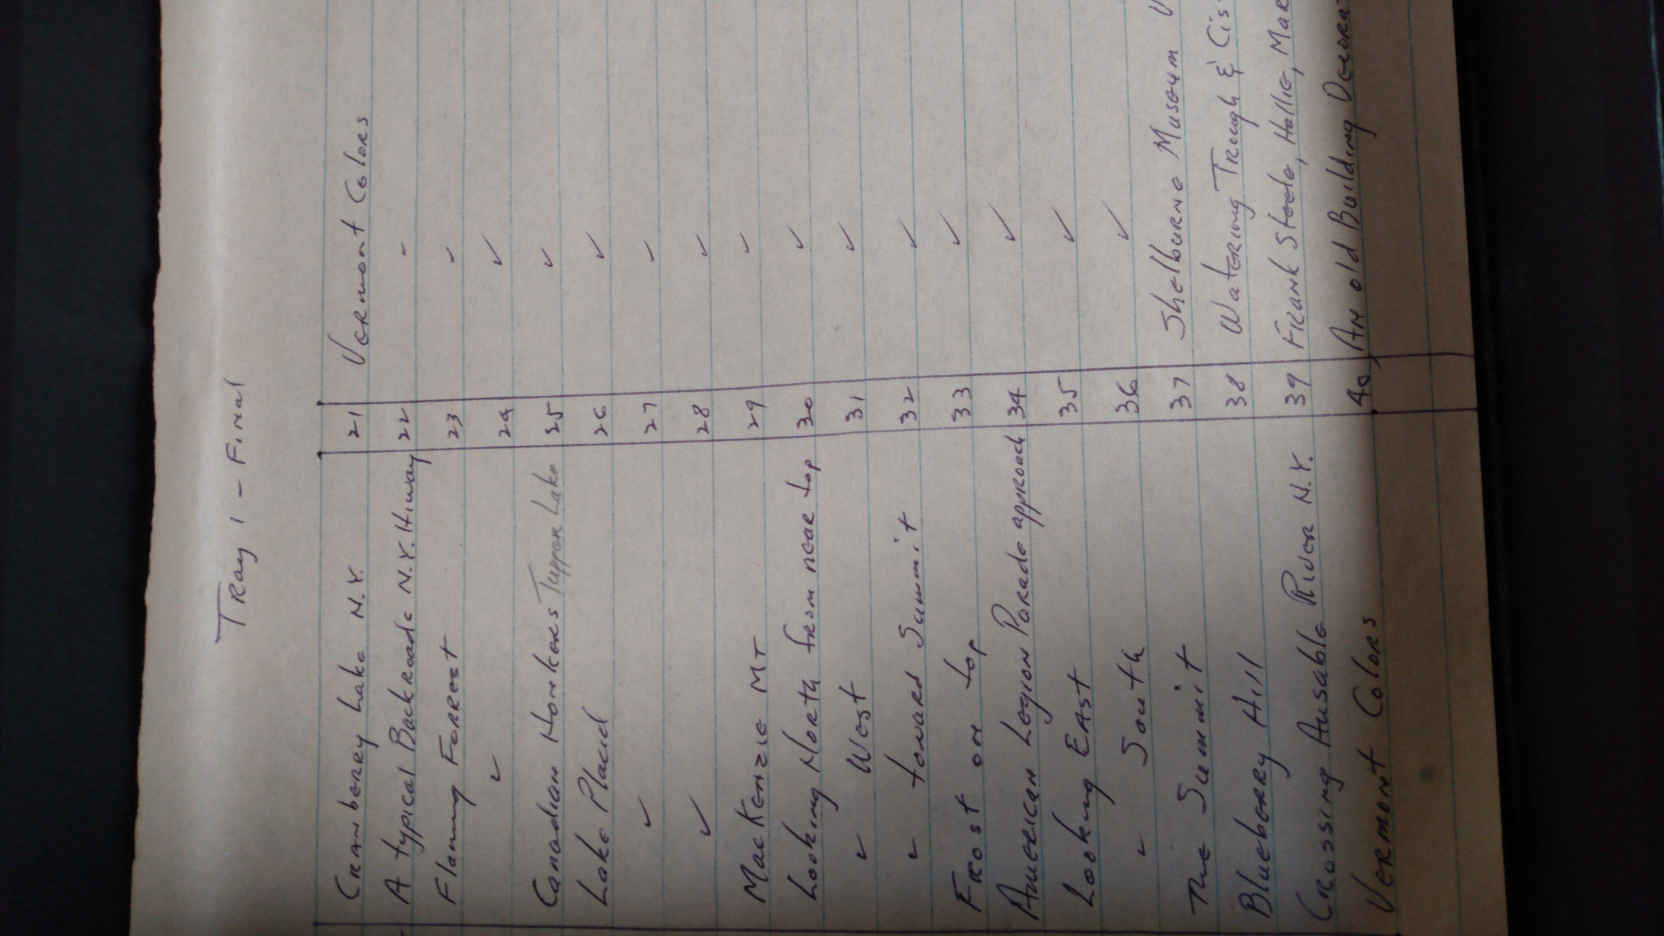 Tray 1 - Final
Cranberry Lake N.Y. 21 Vermont Colors
A typical Backroads N.Y. Hiway 22 ✓
Flaming Forrest 23 ✓
✓ 24 ✓
Canadian Honkers Tupper Lake 25 ✓
Lake Placid 26 ✓
✓ 27 ✓
✓ 28 ✓
MacKenzie MT 29 ✓
Looking North from near top 30 ✓
✓ West 31 ✓
✓ toward Summit 32 ✓
Frost on top 33 ✓
American Legion Parade approach 34 ✓
Looking East 35 ✓
✓ South 36 ✓
The Summit 37 Shelburne Museum V
Blueberry Hill 38 Watering Trough & Cis
Crossing Ausable River N.Y. 39 Frank Steele, Hollie, Mar
Vermont Colors 40 An old Building Decora